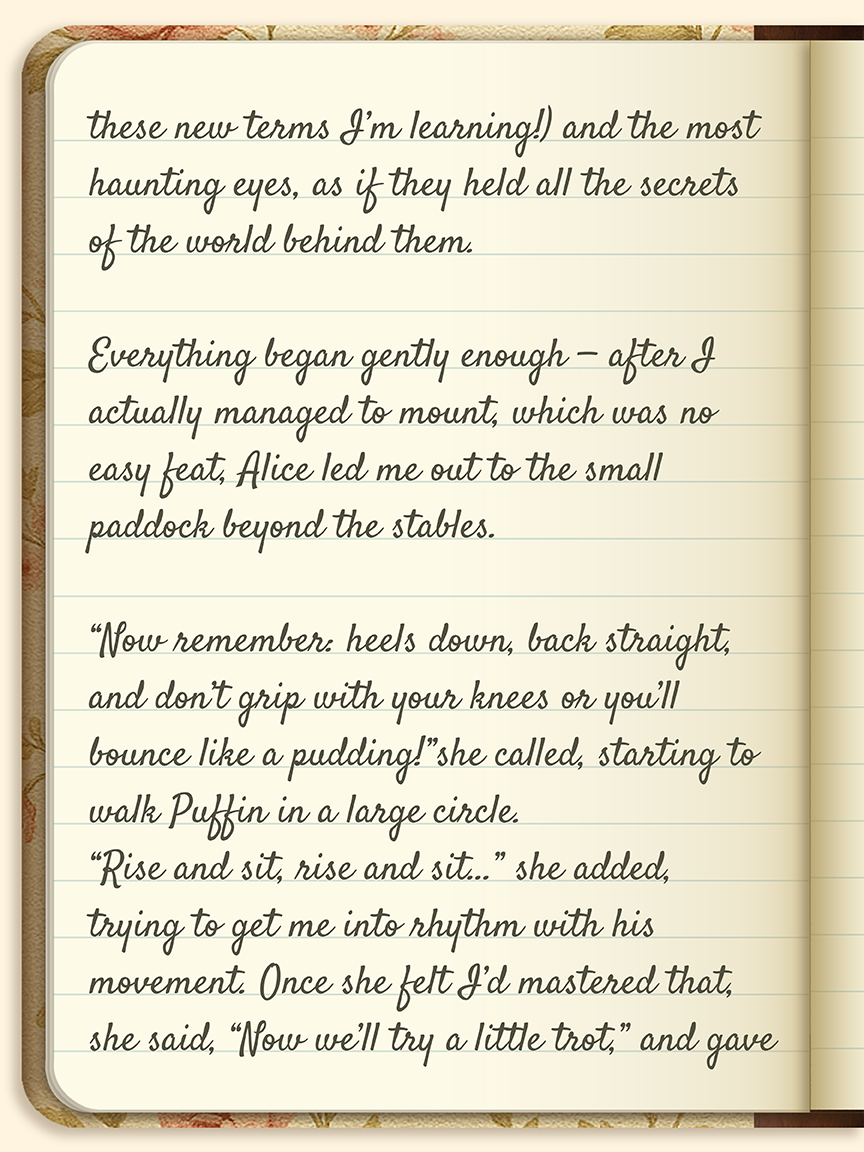 these new terms I’m learning!) and the most
haunting eyes, as if they held all the secrets
of the world behind them.
Everything began gently enough – after I
actually managed to mount, which was no
easy feat, Alice led me out to the small
paddock beyond the stables.
“Now remember: heels down, back straight,
and don’t grip with your knees or you’ll
bounce like a pudding!”she called, starting to
walk Puffin in a large circle.
“Rise and sit, rise and sit...” she added,
trying to get me into rhythm with his
movement. Once she felt I’d mastered that,
she said, “Now we’ll try a little trot,” and gave